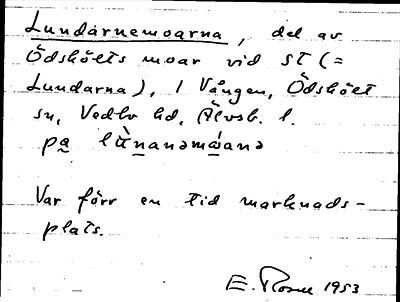 Lundarnemoarna, del av
Ödsköets moar vid ST (=
Lundarna), i Vången, Ödsköet
sn, Vedbo hd, Älvsb. l.
pa lünanəmáanə
Var förr en tid marknads-
plats.
E. Rosell 1953